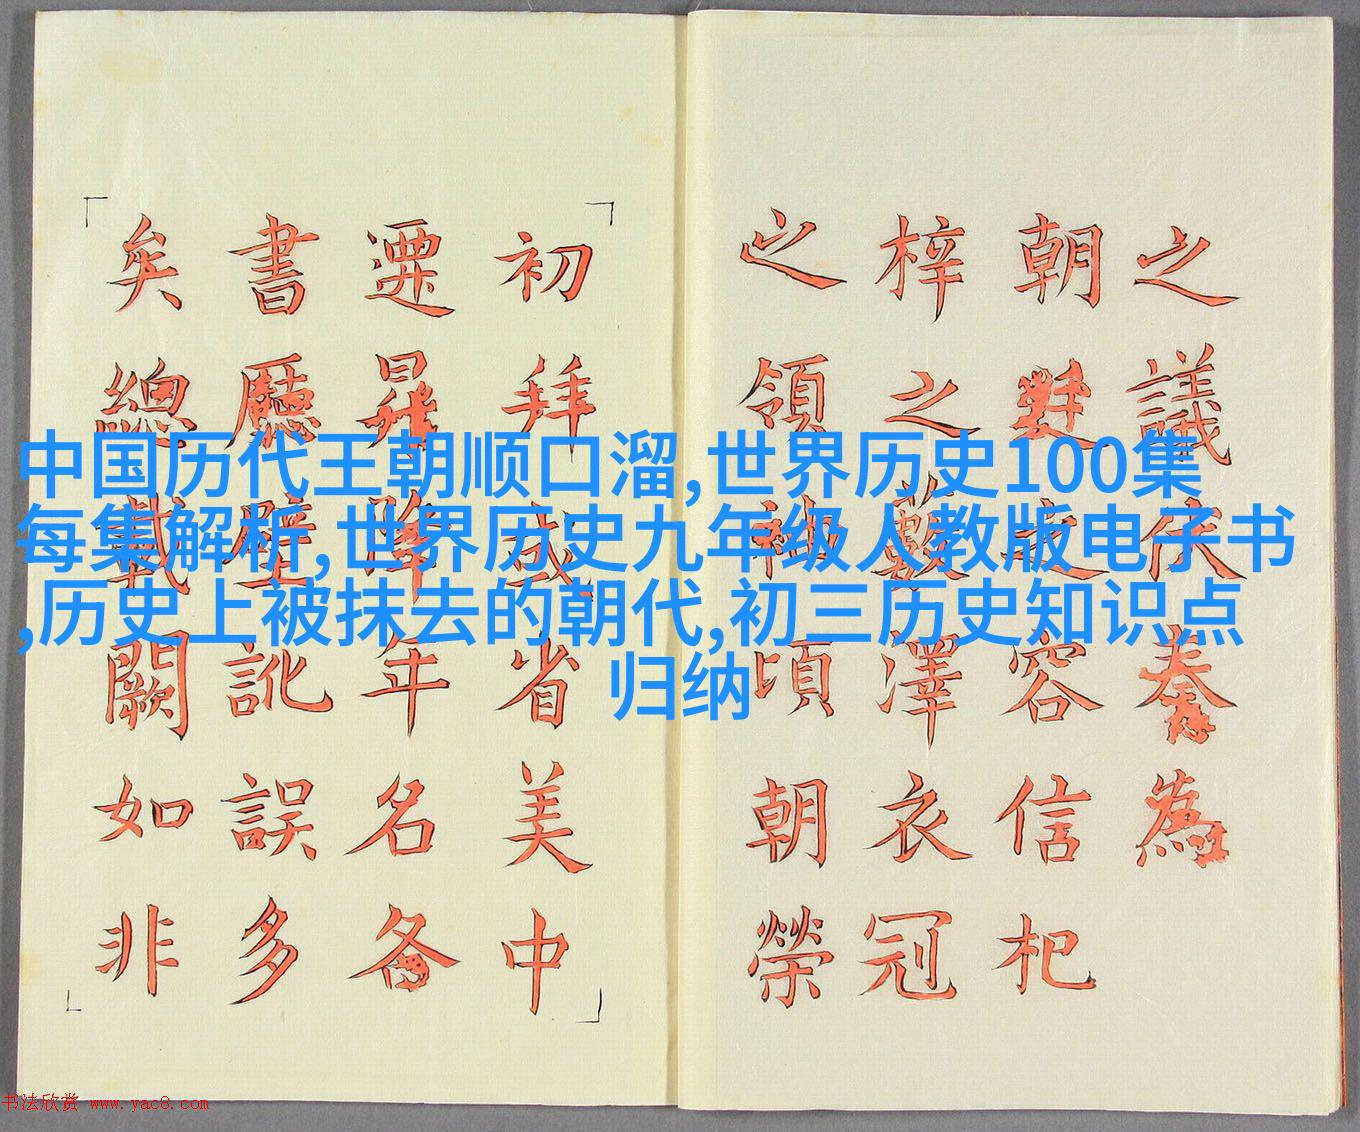 中国历代王朝顺口溜,世界历史100集
每集解析,世界历史九年级人教版电子书
,历史上被抹去的朝代,初三历史知识点
归纳
之議伏奏為
朝對之容信杞
梓之藪澤衣冠
之領袖頃朝榮
初拜或省美中
遷昇降年名各
書廳壁訛誤多
矣總載闕如非
书法欣赏 www.yac8.com